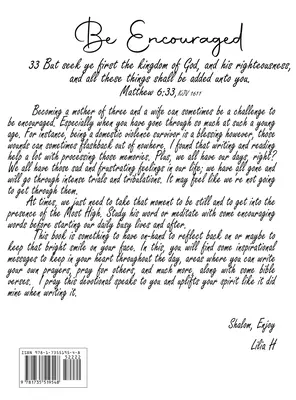 Be Encouraged
33 But seek ye first the kingdom of God, and his righteousness,
and all these things shall be added unto you.
Matthew 6:33, KJV 1611
Becoming a mother of three and a wife can sometimes be a challenge to
be encouraged. Especially when you have gone through so much at such a young
age. For instance, being a domestic violence survivor is a blessing however, those
wounds can sometimes flashback out of nowhere. I found that writing and reading
help a lot with processing those memories. Plus, we all have our days, right?
We all have those sad and frustrating feelings in our life; we have all gone and
will go through intense trials and tribulations. It may feel like we're not going
to get through them.
At times, we just need to take that moment to be still and to get into the
presence of the Most High. Study his word or meditate with some encouraging
words before starting our daily busy lives and after.
This book is something to have on-hand to reflect back on or maybe to
keep that bright smile on your face. In this, you will find some inspirational
messages to keep in your heart throughout the day, areas where you can write
your own prayers, pray for others, and much more, along with some bible
verses. I pray this devotional speaks to you and uplifts your spirit like it did
mine when writing it.
Shalom, Enjoy
Lilia H